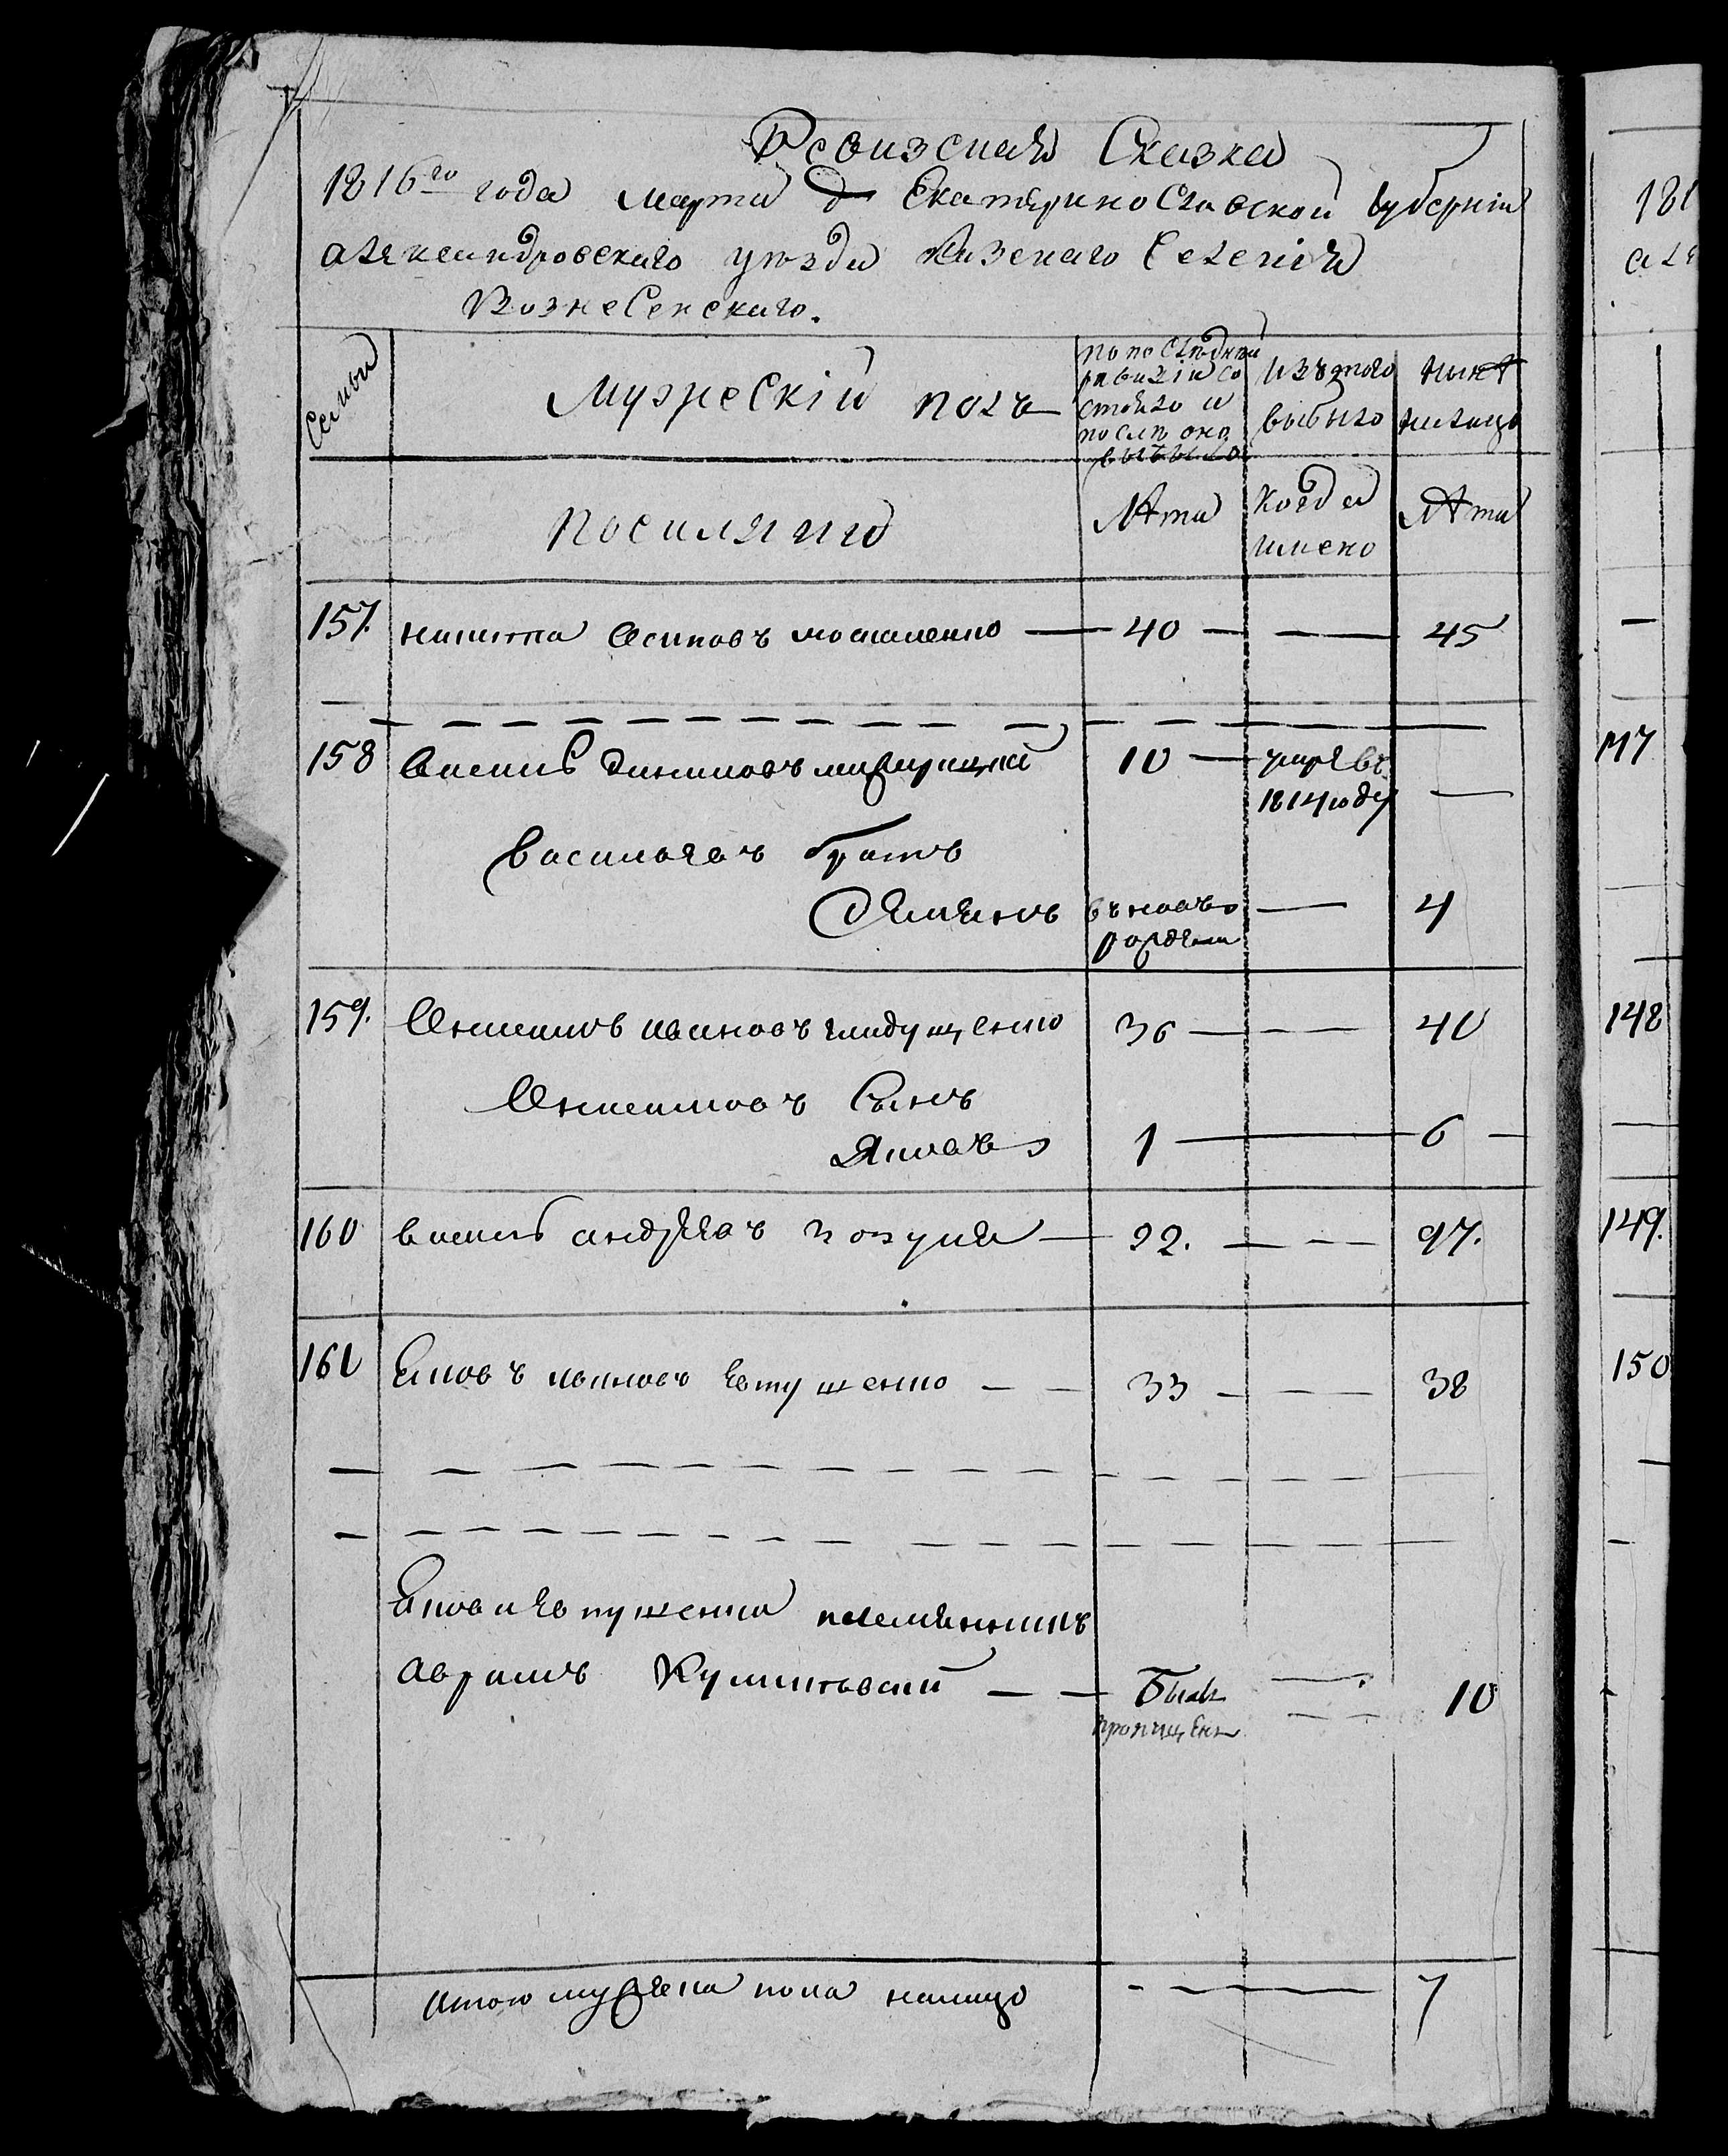 Ревизская Сказка
1816го года марта д Екатяринославской губернии
алянсандровского уезда Казенаго Селения
Вознесенскаго.
Семьи
Мужеский полъ
по последней
равизии со
стояло и
после оно
выбыло
Изътого
выбыло
ныне
налицо
посиляниѣ
Лѣта
Когда
имено
Лѣта
157. никита Осиповъ москаленко — 40 — — 45
158 Василь Даниловъ 10 — умре въ
1814 году —
Васильевъ братъ
Сямянъ въновь — 4
рожденъ
159. ивановъ гладущенко 36 — — 40
Сынъ
Яковъ 1 — 6
160 василь андреевъ козуля — 92. — — 97.
161 Яковъ ивановъ Евтушенко — — 33 — — 38
Якова Евтушенка племянникъ
Аврамъ Куликовский — — Былъ — 10
пропущенъ — —
Итого мужеска пола налицо — — — 7
181
але
147
148
149.
150